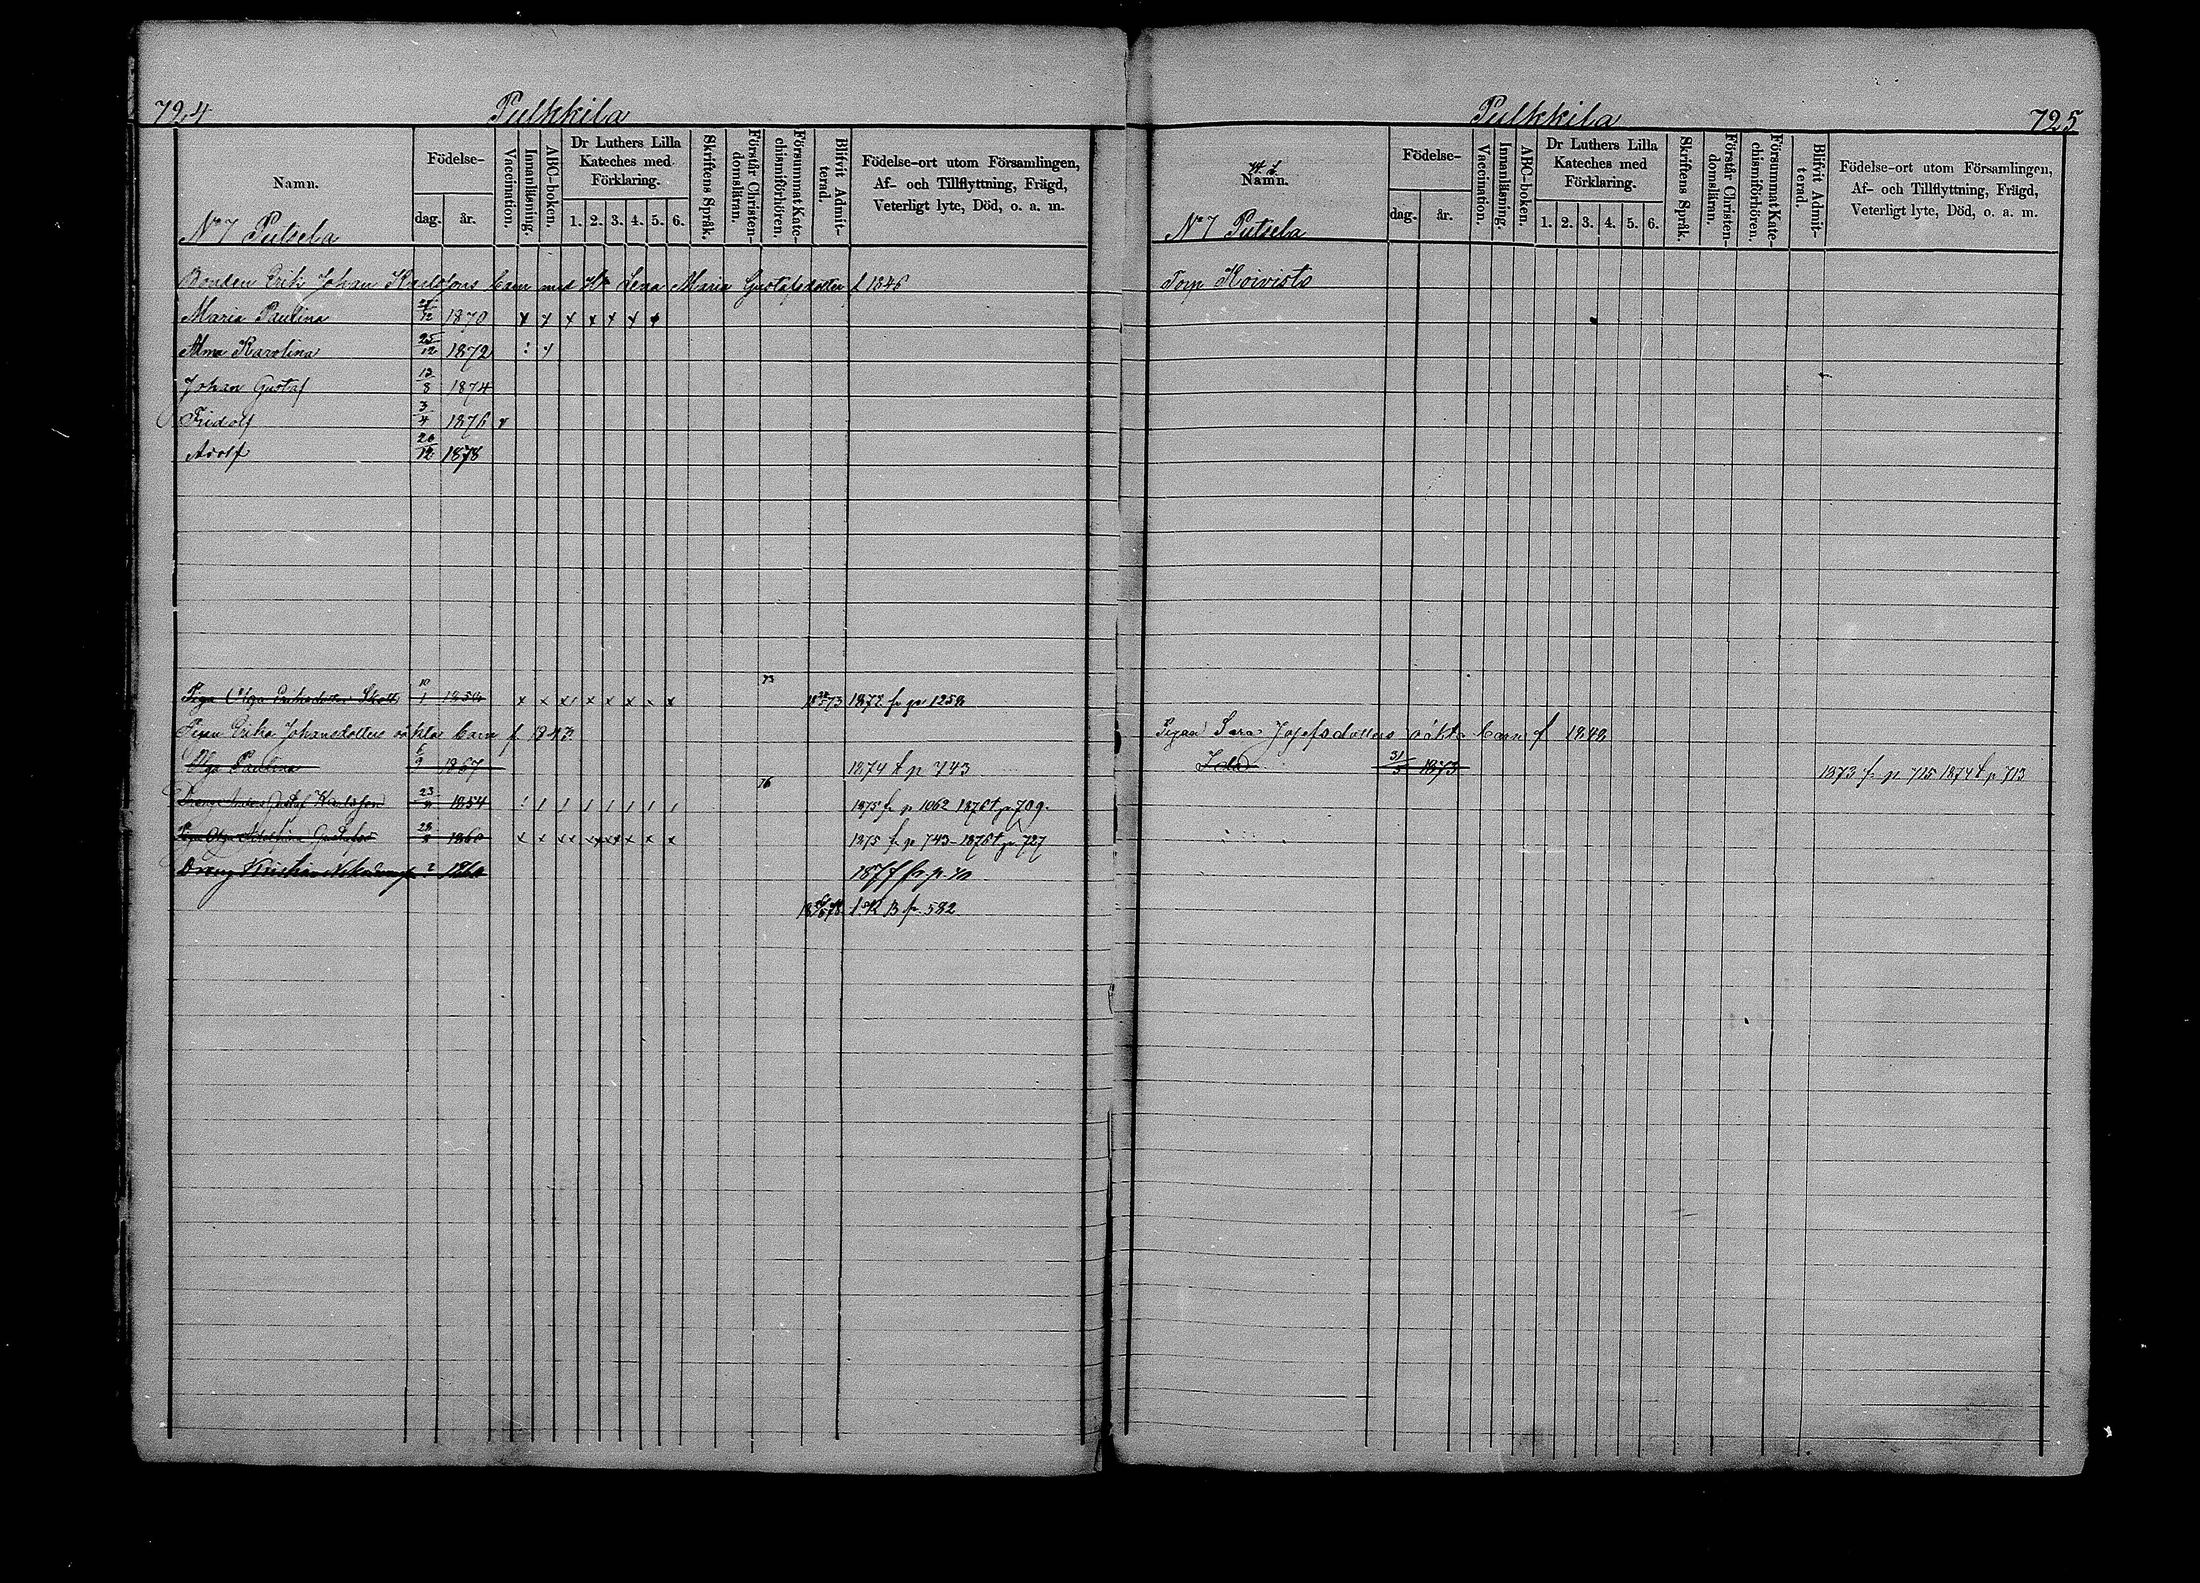 724 Pulkkila
Namn. Födelse- dag. år. Vaccination. Innanläsning. ABC-boken. Dr Luthers Lilla Kateches med Förklaring. 1. 2. 3. 4. 5. 6. Skriftens Språk. Förstår Christendomsläran. Försummat Katechismiförhören. Blifvit Admitterad. Födelse-ort utom Församlingen, Af- och Tillflyttning, Frägd, Veterligt lyte, Död, o. a. m.
No 7 Putsela
Bonden Erik Johan Karlssons barn med Ha Lena Maria Gustafsdotter f 1846
Maria Paulina 12 1870 x x x x x x
Alma Karolina 25/12 1872 : x
Johan Gustaf 13/8 1874
Fridolf 3/4 1876 v
Adolf 20/12 1878
73
Piga Olga Eriksdotter 10/1 x x x x x x x x 73 1872 fr p 1258
Pigan Erika Johansdotters oäkta barn f 1843
Olga Paulina 9 1867 1874 t p 743
76
Gustaf Karlsson 23 1854 : / / / / / / / 1875 fr p 1062 1876 t p 709.
Piga Olga Gustafsd 28 1860 x x x x x x x x 1875 fr p 743 1876 t p 727
Dreng Kristian 1860 1877 fr. p.
78 fr. 582
Pulkkila 725
Namn. Födelse- dag. år. Vaccination. Innanläsning. ABC-boken. Dr Luthers Lilla Kateches med Förklaring. 1. 2. 3. 4. 5. 6. Skriftens Språk. Förstår Christendomsläran. Försummat Katechismiförhören. Blifvit Admitterad. Födelse-ort utom Församlingen, Af- och Tillflyttning, Frägd, Veterligt lyte, Död, o. a. m.
No 7 Putsela
Torp Koivisto
Pigan Sara Josefsdotters oäkta barn f 1848
31/5 1873 1873 fr p 715 1874 t p 713